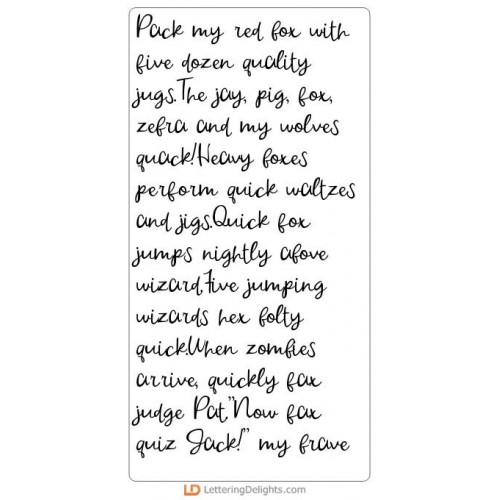 Pack my red fox with
five dozen quality
jugs.The jay, pig, fox,
zefra and my wolves
quack!Heavy foxes
perform quick waltzes
and jigs.Quick fox
jumps nightly afove
wizard.Five jumping
wizards hex folty
quick.When zomfies
arrive, quickly fax
judge Pat."Now fax
quiz Jack!" my frave
LD LetteringDelights.com